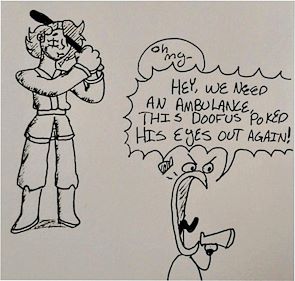 oh
my-
HEY, WE NEED
AN AMBULANCE,
THIS DOOFUS POKED
HIS EYES OUT AGAIN!